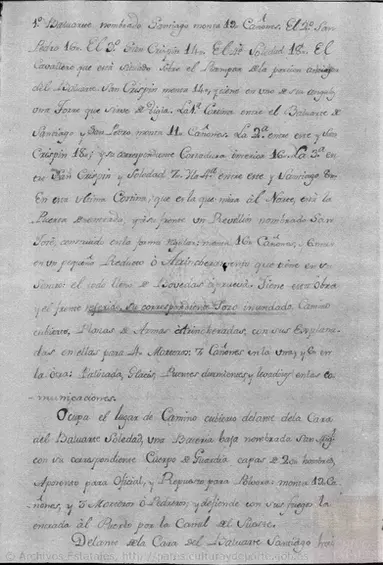 1º Baluarte nombrado Santiago monta 12 Cañones. El 2º San
Pedro 16„ El 3º San Crispin 14„ El 4º Soledad 18„ El
Cavallero que está situado sobre el
del Baluarte San Crispin monta 14„ y tiene en uno de sus angulos
una Torre que sirve de La 1ª Cortina entre el Baluarte de
Santiago y San Pedro, monta 11„ Cañones. La 2ª entre este y San
Crispin 18„ y su correspondiente interior 16„ La 3ª en
tre San Crispin y Soledad 7„ La 4ª entre este y Santiago 8„
En esta ultima Cortina, que es la que mira àl Norte, està la
Puerta y à su frente un Revellin nombrado San
José, construido en la forma regular; monta 16„ Cañones, y
en un pequeño Reducto ò que tiene en su
el todo lleno de Bovedas Tiene esta Obra
y el frente referido, su correspondiente Foso inundado, Camino
cubierto, Plazas de Armas atrincheradas, con sus Explana-
das en ellas para 4„ Morteros, 7„ Cañones en la una, y 6„ en
la otra: Glacis, Puentes durmientes y levadizos en las co-
municaciones.
Ocupa el lugar de Camino cubierto delante de la Cara
del Baluarte Soledad, una Bateria baja nombrada San
con su correspondiente Cuerpo de Guardia capas de 20„ hombres,
Aposento para Oficial, y Repuesto para Polvora: monta 12 Ca-
ñones, y 3„ Morteros ò Pedreros, y defiende con sus fuegos la
entrada àl Puerto por la Canal del
Delante de la Cara del Baluarte Santiago hai
© Archivos Estatales,